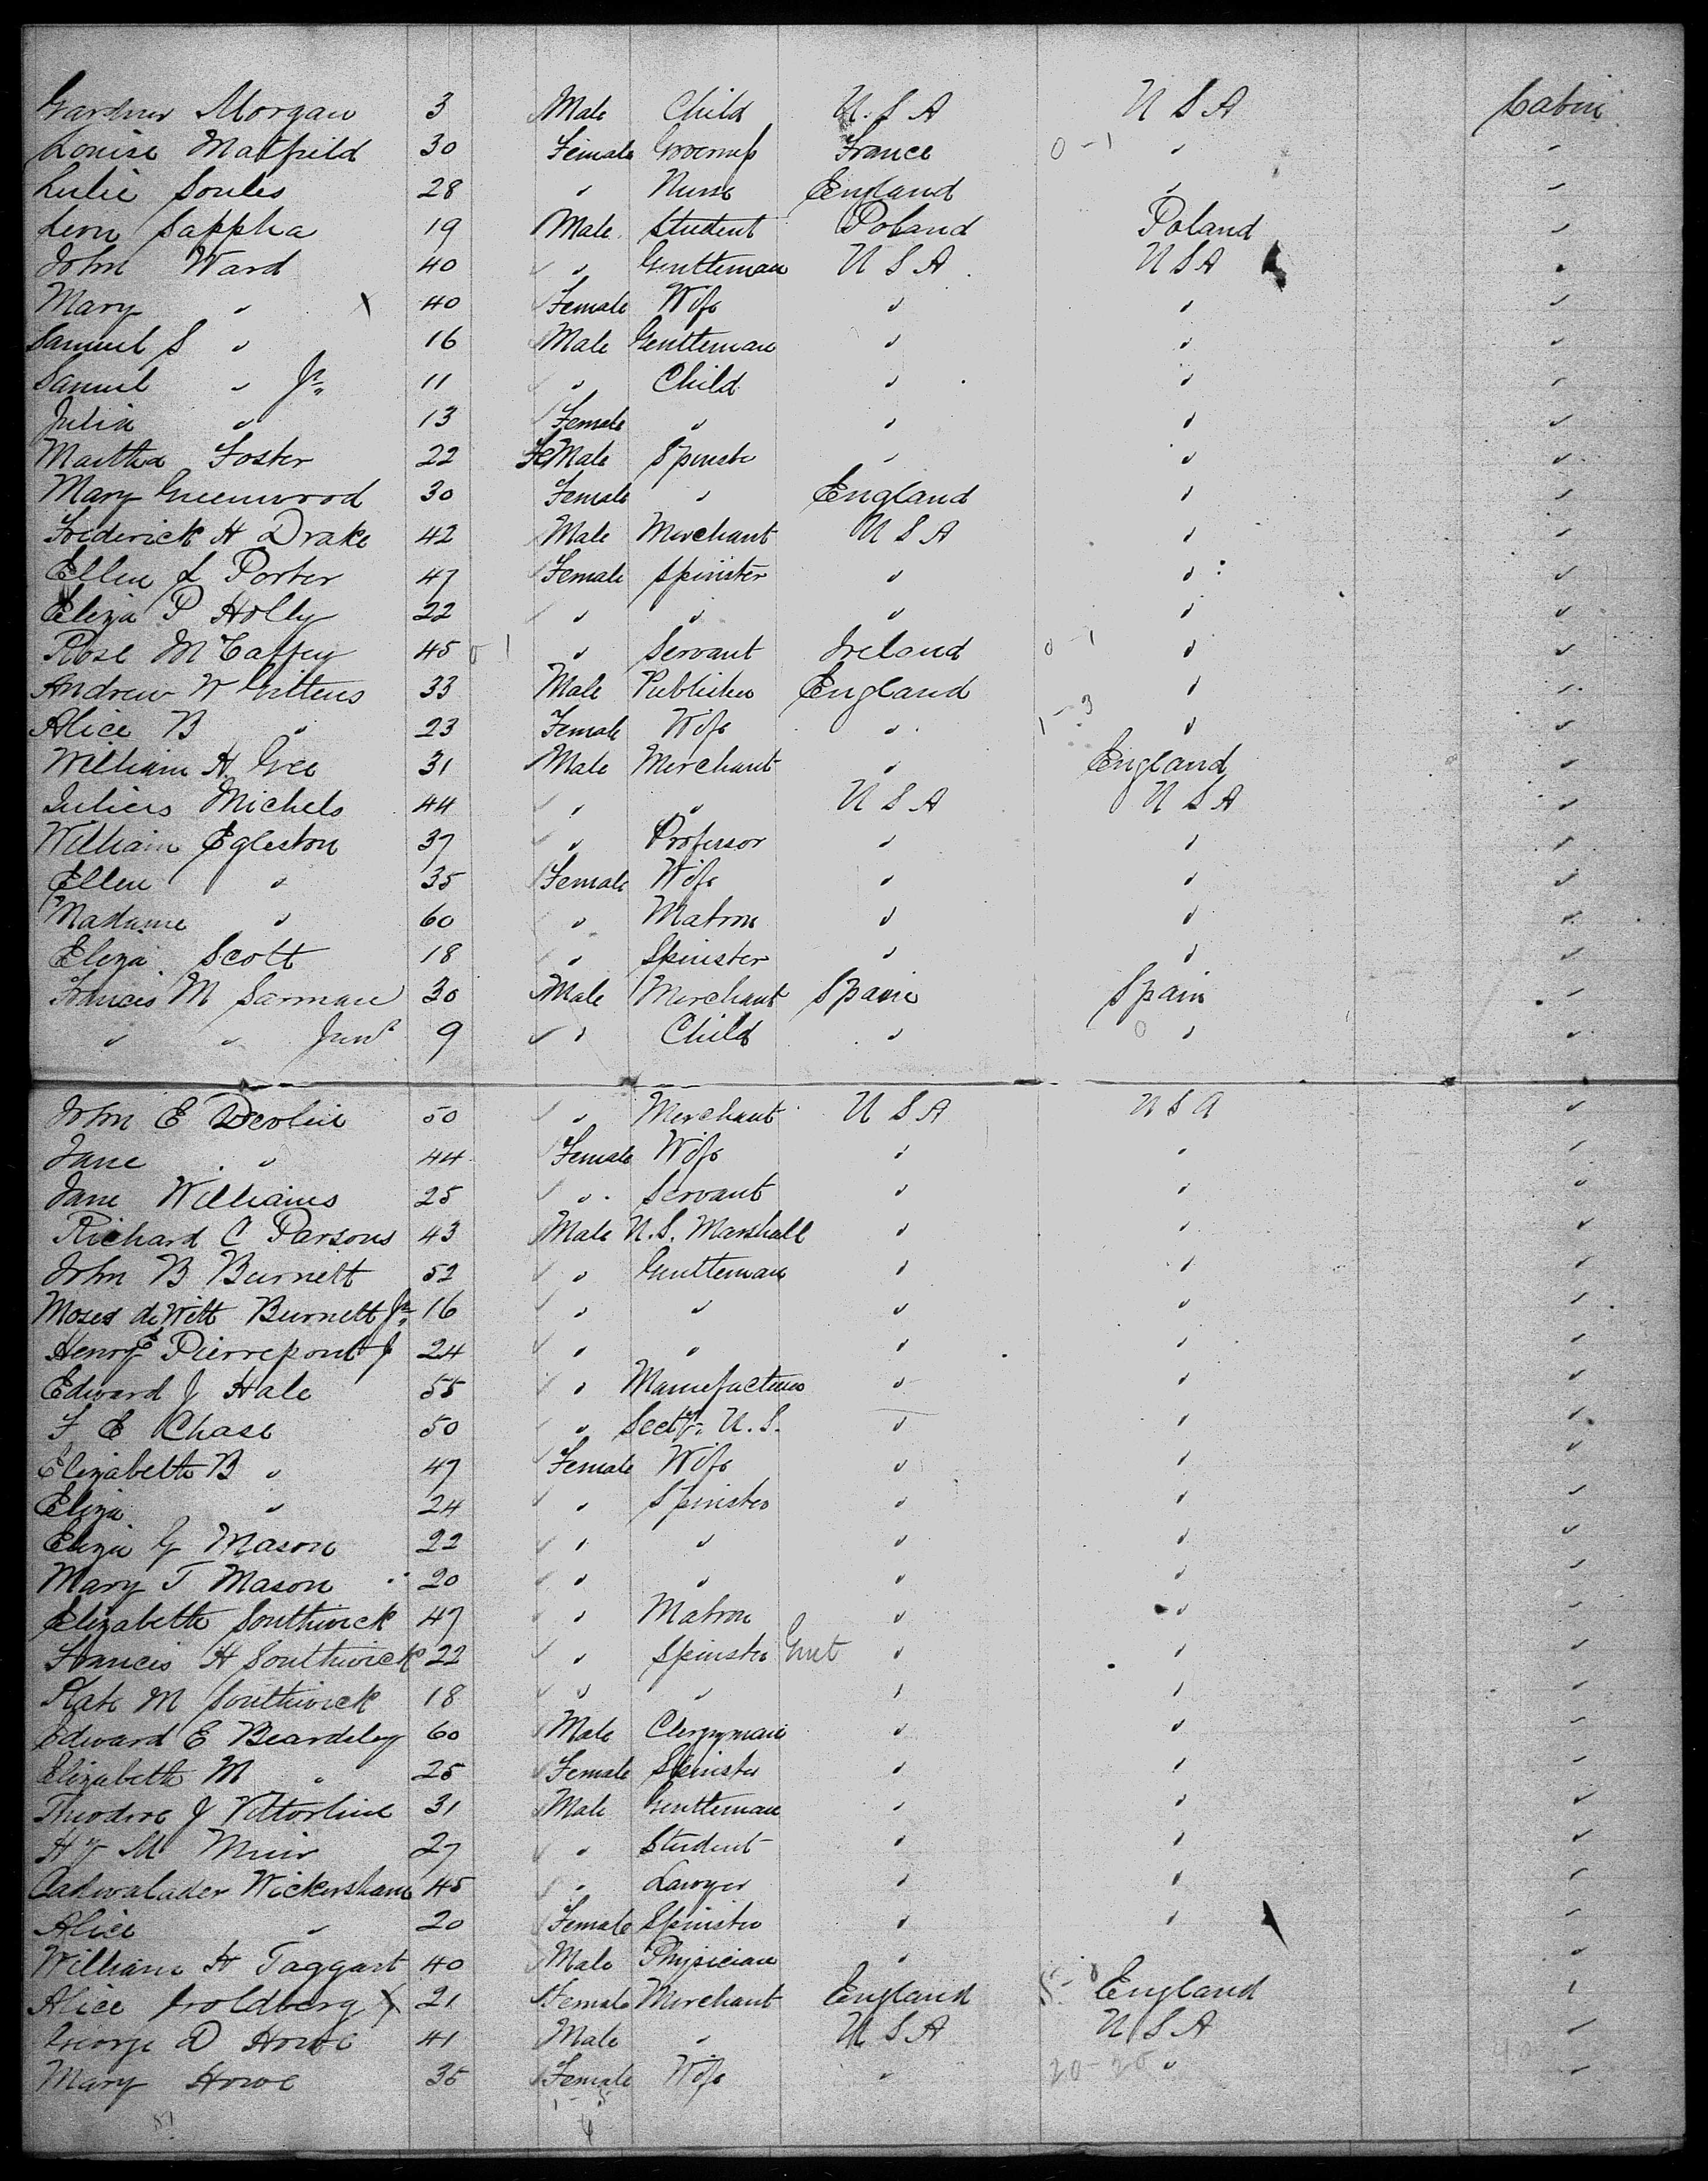 Gardner Morgan 3 Male Child U.S.A U S A Cabin
Louise Matfield 30 Female Governess France 0-1 "
Lulie Soules 28 " Nurse England " "
Leon Sappha 19 Male Student Poland Poland "
John Ward 40 " Gentleman U S A U S A "
Mary " 40 Female Wife " " "
Samuel S " 16 Male Gentleman " " "
Samuel " Jr. 11 " Child " " "
Julia " 13 Female " " " "
Martha Foster 22 FeMale Spinster " " "
Mary Greenwood 30 Female " England " "
Frederick H Drake 42 Male Merchant U S A " "
Ellen L Porter 47 Female Spinster " " "
Eliza P Holly 22 " " " " "
Rose McCaffey 45 0 1 " Servant Ireland 0-1 " "
Andrew W Gittens 33 Male Publisher England " "
Alice B " 23 Female Wife " 1-3 " "
William H Gee 31 Male Merchant " England "
Julius Michels 44 " " U S A U S A "
William Egleston 37 " Professor " " "
Ellen " 35 Female Wife " " "
Madame " 60 " Matron " " "
Eliza Scott 18 " Spinster " " "
Francis M Sarmau 30 Male Merchant Spain Spain "
" " Junr 9 " Child " 0 " "
John E Devlin 50 " Merchant U S A U S A "
Jane " 44 Female Wife " " "
Jane Williams 25 " Servant " " "
Richard C Parsons 43 Male U.S. Marshall " " "
John B Burnett 52 " Gentleman " " "
Moses de Witt Burnett Jr. 16 " " " " "
Henry E Pierrepont J 24 " " " " "
Edward J Hale 55 " Manufacturer " " "
F E Chase 50 " Secty. U.S. " " "
Elizabeth B " 47 Female Wife " " "
Eliza " 24 " Spinster " " "
Eliza G Mason 22 " " " " "
Mary T Mason 20 " " " " "
Elizabeth Southwick 47 " Matron " " "
Francis H Southwick 22 " Spinster " " "
Kate M Southwick 18 " " " " "
Edward E Beardsley 60 Male Clergyman " " "
Elizabeth M " 25 Female Spinster " " "
Theodore J 31 Male Gentleman " " "
Hy M Muir 27 " Student " " "
Cadwalader Wickersham 45 " Lawyer " " "
Alice " 20 Female Spinster " " "
William H Taggart 40 Male Physician " "
Alice Goldberg X 21 Female Merchant England England "
George D Howe 41 Male " U S A U S A "
Mary Howe 35 Female Wife " 20-25 " "
51